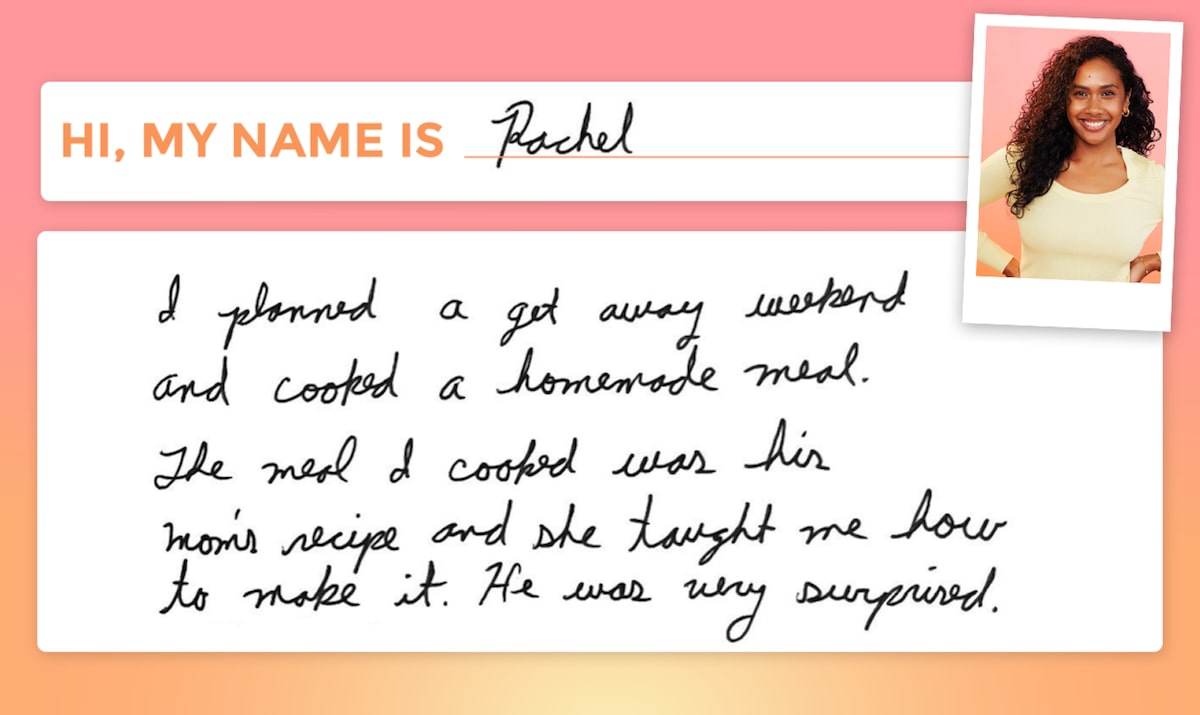 HI, MY NAME IS Rachel
I planned a get away weekend
and cooked a homemade meal.
The meal I cooked was his
mom's recipe and she taught me how
to make it. He was very surprised.